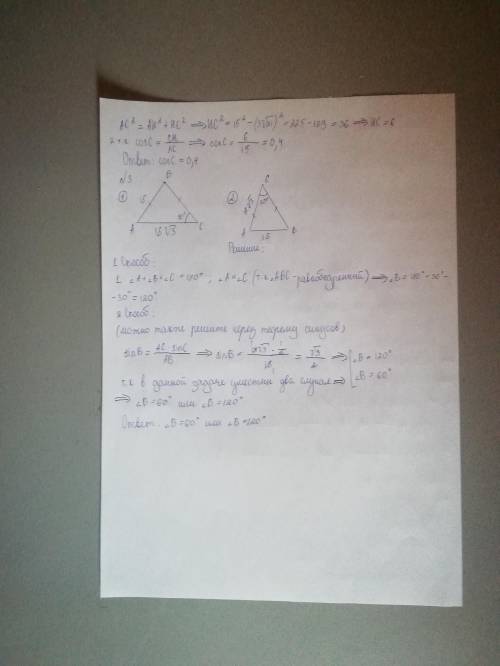 AC² = AH² + HC² ⟹ HC² = 15² − (3√21)² = 225 − 189 = 36 ⟹ HC = 6
2. т.к. cosC = CH/AC ⟹ cosC = 6/15 = 0,4
Ответ: cosC = 0,4
N3
① B 15 A 15√3 C 30°
② C 30° A 15 B
Решение:
1 Способ:
1. ∠A+∠B+∠C = 180°; ∠A=∠C (т.к. △ABC - равнобедренный) ⟹ ∠B = 180° - 30° -
- 30° = 120°
2 Способ:
(можно также решить через теорему синусов)
sinB = AC · sinC / AB ⟹ sinB = 15√3 · 1/2 / 15 = √3/2 ⟹ [ ∠B = 120°
∠B = 60°
т.к. в данной задаче уместны два случая ⟹
⟹ ∠B = 60° или ∠B = 120°
Ответ: ∠B = 60° или ∠B = 120°